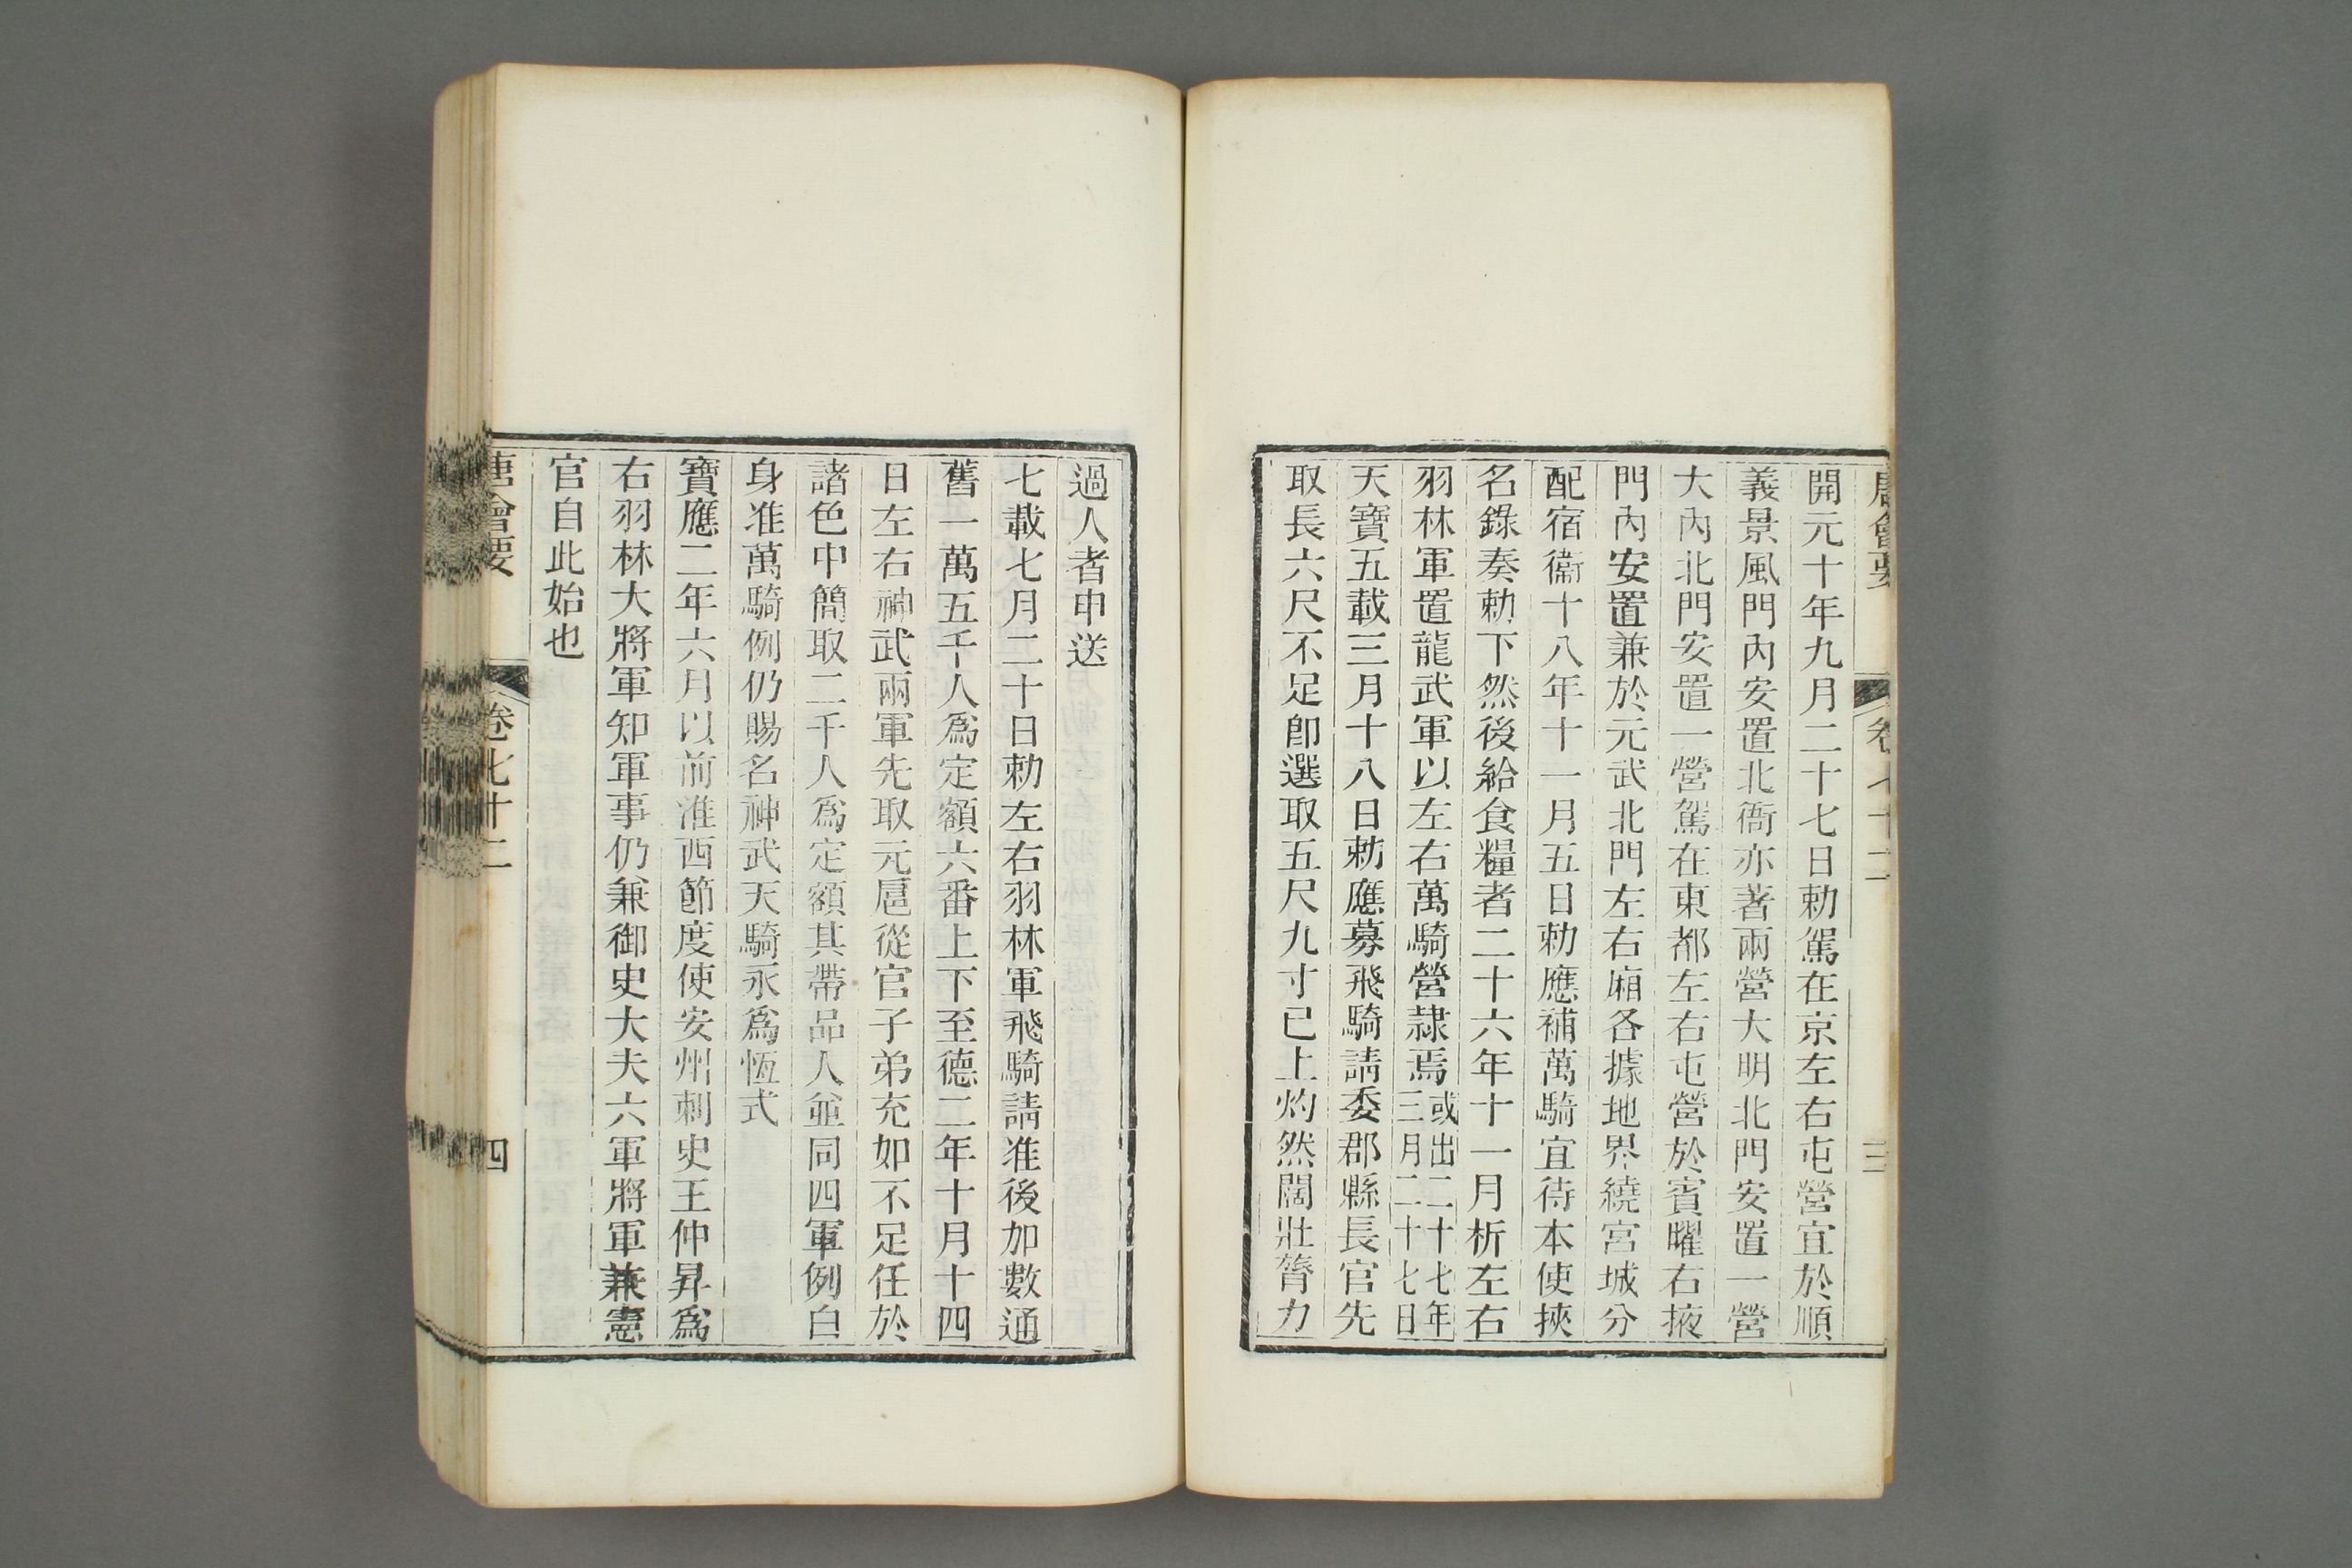 唐會要 卷七十二 三
開元十年九月二十七日勅駕在京左右屯營宜於順
義景風門內安置北衙亦著兩營大明北門安置一營
大內北門安置一營駕在東都左右屯營於賓曜右掖
門內安置兼於元武北門左右廂各據地界繞宮城分
配宿衞十八年十一月五日勅應補萬騎宜待本使挾
名錄奏勅下然後給食糧者二十六年十一月析左右
羽林軍置龍武軍以左右萬騎營隷焉或出二十七年三月二十七日
天寶五載三月十八日勅應募飛騎請委郡縣長官先
取長六尺不足卽選取五尺九寸已上灼然闊壯膂力
過人者申送
七載七月二十日勅左右羽林軍飛騎請准後加數通
舊一萬五千人爲定額六番上下至德二年十月十四
日左右神武兩軍先取元扈從官子弟充如不足任於
諸色中簡取二千人爲定額其帶品人並同四軍例白
身准萬騎例仍賜名神武天騎永爲恆式
寶應二年六月以前淮西節度使安州刺史王仲昇爲
右羽林大將軍知軍事仍兼御史大夫六軍將軍兼憲
官自此始也
唐會要 卷七十二 四